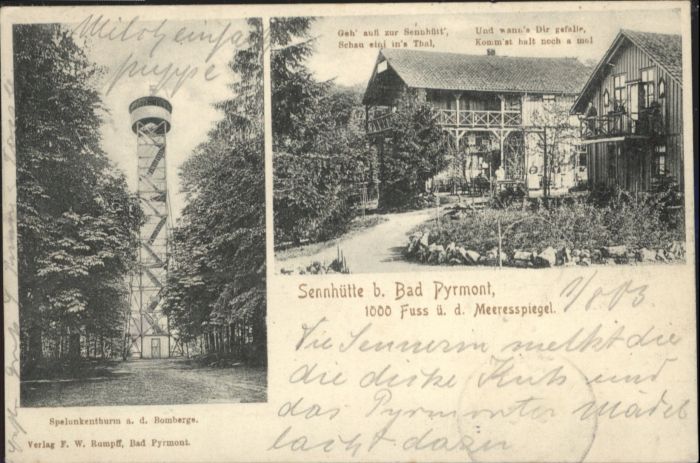 Milcheinfass
puppe
Geh' auß zur Sennhütt',
Schau eini in's Thal,
Und wann's Dir gefalle,
Komm'st halt noch a mol
Sennhütte b. Bad Pyrmont,
1000 Fuss ü. d. Meeresspiegel.
Die Sennerin melkt die
die dicke Kuh und
das Pyrmonter Mädel
lacht dazu
Spelunkenthurm a. d. Bomberge.
Verlag F. W. Rumpff, Bad Pyrmont.